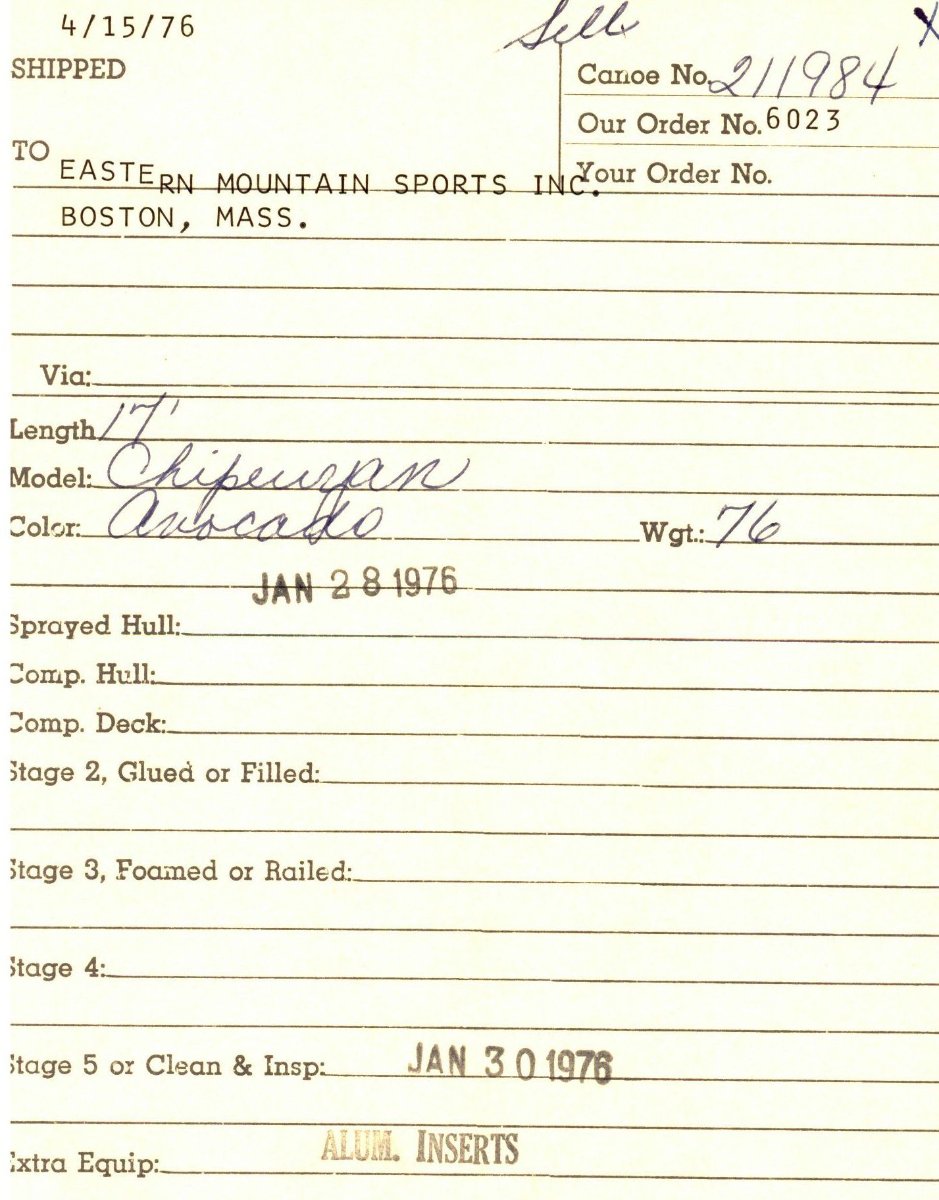 4/15/76
Sell
X
SHIPPED
Canoe No. 211984
Our Order No. 6023
TO
Your Order No.
EASTERN MOUNTAIN SPORTS INC.
BOSTON, MASS.
Via:
Length 17'
Model: Chipewyan
Color: Avocado Wgt.: 76
JAN 28 1976
Sprayed Hull:
Comp. Hull:
Comp. Deck:
Stage 2, Glued or Filled:
Stage 3, Foamed or Railed:
Stage 4:
Stage 5 or Clean & Insp: JAN 30 1976
Extra Equip: ALUM. INSERTS